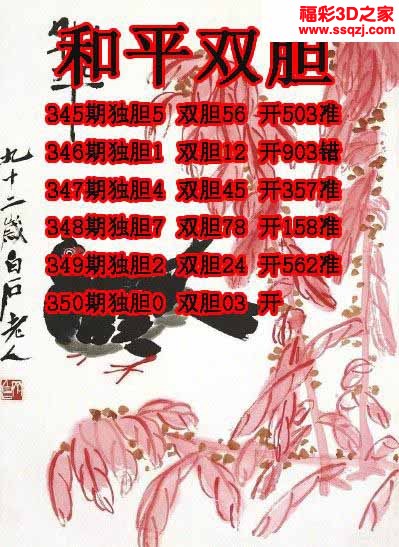 福彩3D之家
www.ssqzj.com
和平双胆
345期独胆5 双胆56 开503准
346期独胆1 双胆12 开903错
347期独胆4 双胆45 开357准
348期独胆7 双胆78 开158准
349期独胆2 双胆24 开562准
350期独胆0 双胆03 开
九十二岁白石老人